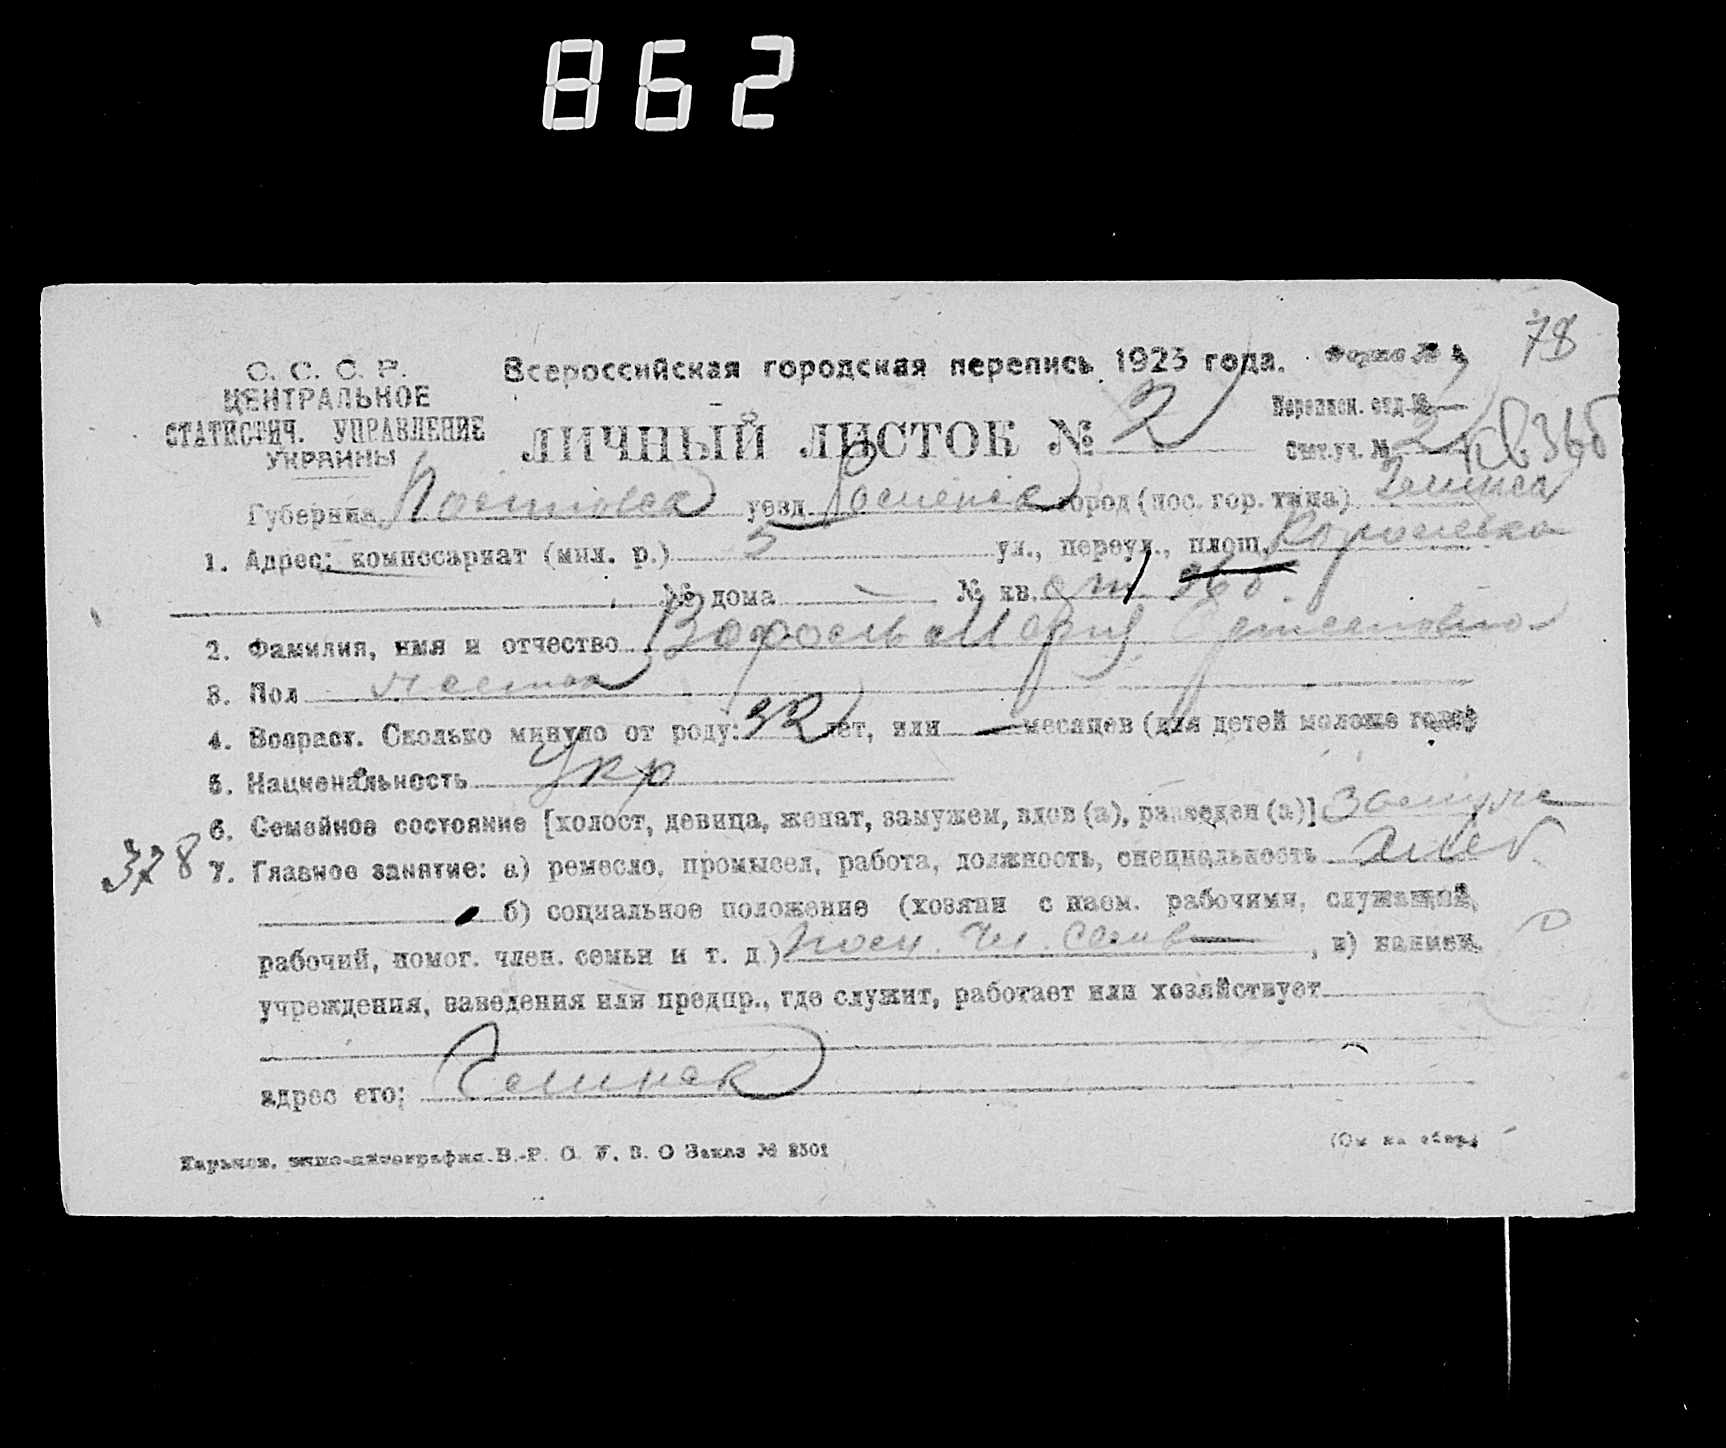 862
78
С. С. С. Р.
ЦЕНТРАЛЬНОЕ
СТАТИСТИЧ. УПРАВЛЕНИЕ
УКРАИНЫ
Всероссийская городская перепись 1923 года. Форма №
ЛИЧНЫЙ ЛИСТОК № 2
Переписн. отд. №
Счет. уч. № 2
Губерния Полтавск уезд Роменск город (пос. гор. типа)
1. Адрес: комиссариат (мил. р.) 5 ул., переул., площ.
№ дома — № кв.
2. Фамилия, имя и отчество Мария
3. Пол женск
4. Возраст. Сколько минуло от роду: 32 лет, или — месяцев (для детей моложе года)
5. Национальность Укр
6. Семейное состояние [холост, девица, женат, замужем, вдов (а), разведен (а)] Замуже
378 7. Главное занятие: а) ремесло, промысел, работа, должность, специальность хлеб
б) социальное положение (хозяин с наем. рабочими, служащий,
рабочий, помог. член. семьи и т. д.) пом. чл. семьи, в) наимен.
учреждения, заведения или предпр., где служит, работает или хозяйствует
адрес его:
Харьков, типо-литография В.-Р. О У. В. О Заказ № 2501
(См на обор.)